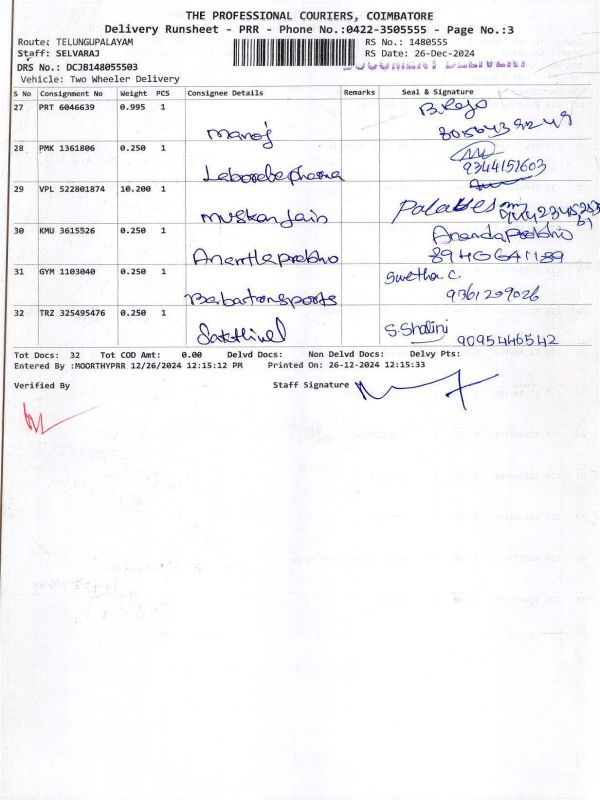 THE PROFESSIONAL COURIERS, COIMBATORE
Delivery Runsheet - PRR - Phone No.:0422-3505555 - Page No.:3
Route: TELUNGUPALAYAM RS No.: 1480555
Staff: SELVARAJ RS Date: 26-Dec-2024
DRS No.: DCJB148055503 DOCUMENT DELIVERY
Vehicle: Two Wheeler Delivery
S No Consignment No Weight PCS Consignee Details Remarks Seal & Signature
27 PRT 6046639 0.995 1 B. Raja
Manoj
28 PMK 1361806 0.250 1
9344151603
29 VPL 522801874 10.200 1
Muskan Jain
30 KMU 3615526 0.250 1
31 GYM 1103040 0.250 1 Swetha C.
9361209026
32 TRZ 325495476 0.250 1 S. Shalini
9095446542
Tot Docs: 32 Tot COD Amt: 0.00 Delvd Docs: Non Delvd Docs: Delvy Pts:
Entered By :MOORTHYPRR 12/26/2024 12:15:12 PM Printed On: 26-12-2024 12:15:33
Verified By Staff Signature